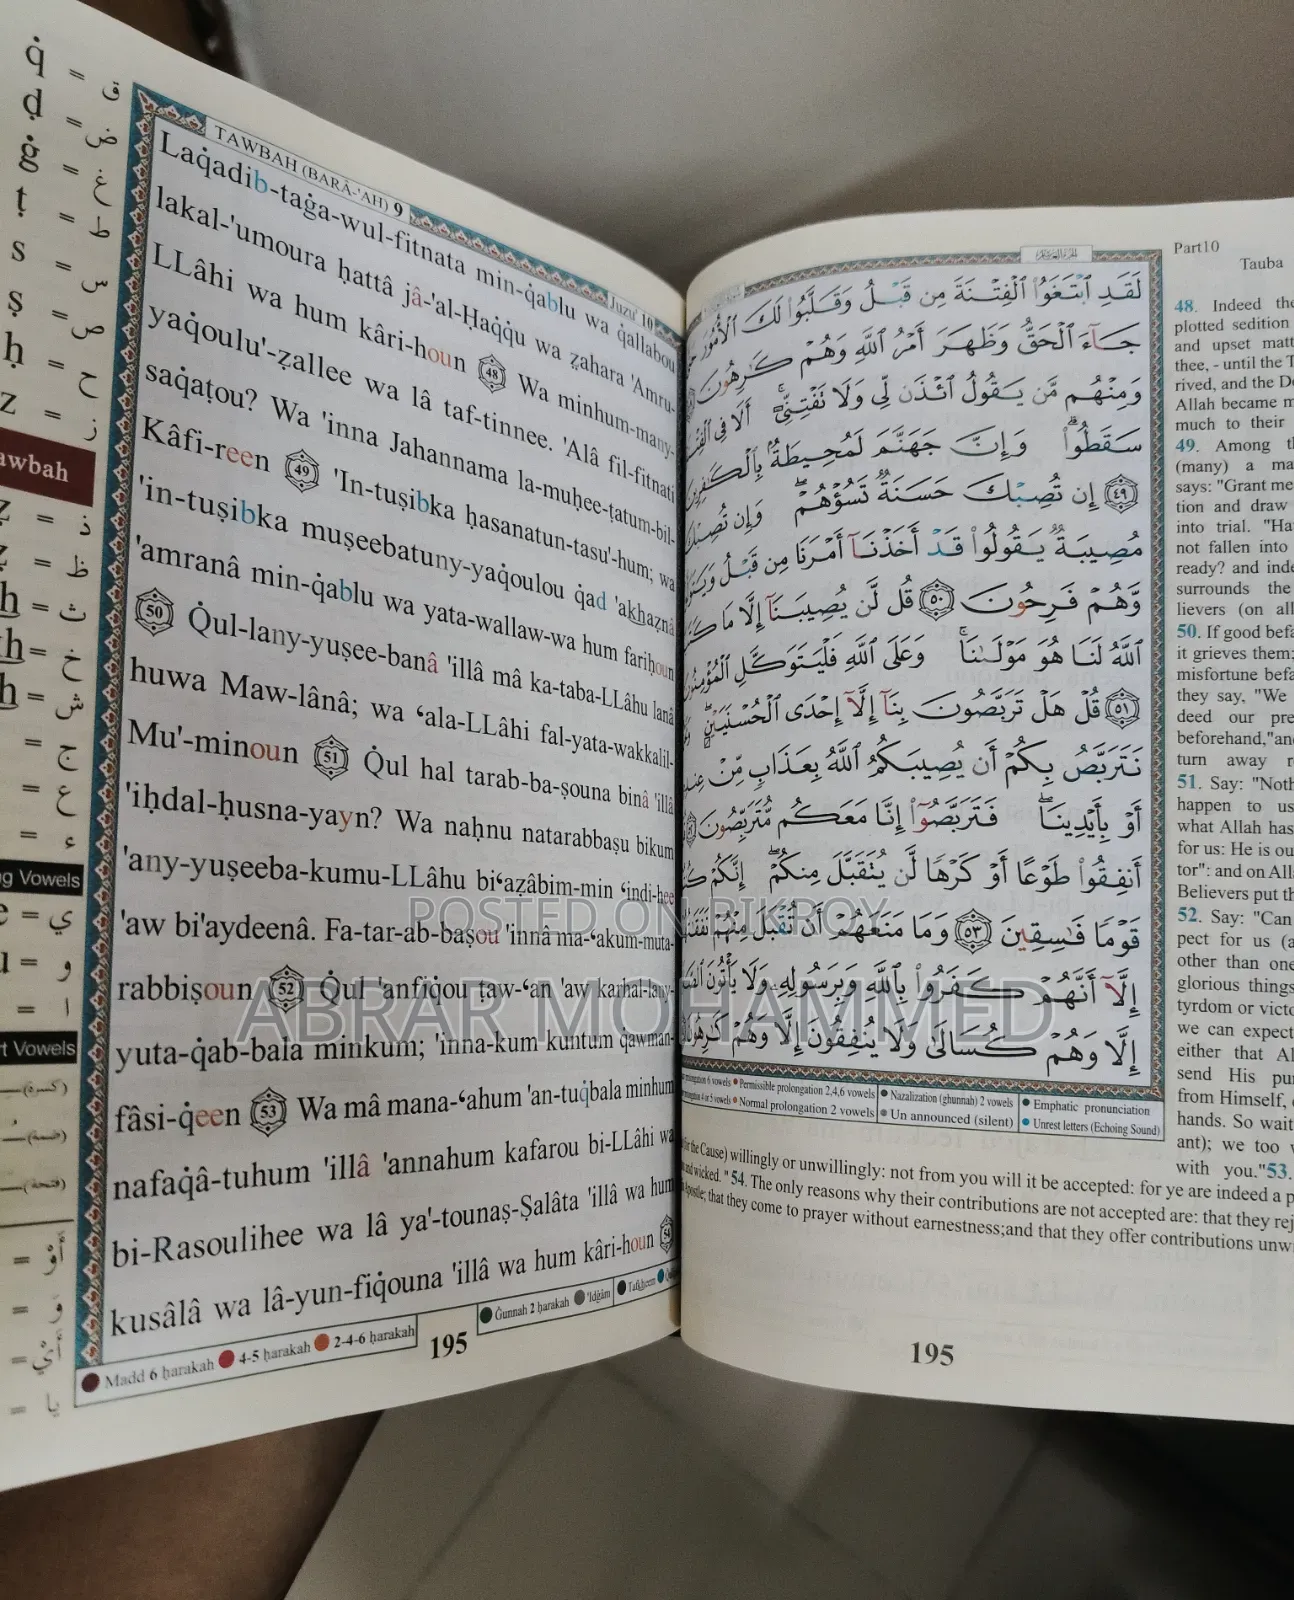 q̇ = ق
ḍ = ض
ġ = غ
ṭ = ط
s = س
ṣ = ص
ḥ = ح
z = ز
awbah
= ذ
= ظ
h = ث
kh = خ
h = ش
= ج
= ع
= ء
g Vowels
= ي
u = و
= ا
t Vowels
(كسرة)
(ضمة)
(فتحة)
= أَوْ
= وَ
= أَيْ
= يا
TAWBAH (BARÂ-'AH) 9
Juzu' 10
Laq̇adib-taġa-wul-fitnata min-q̇ablu wa q̇allabou
lakal-'umoura ḥattâ jâ-'al-Ḥaq̇q̇u wa ẓahara 'Amru-
LLâhi wa hum kâri-houn 48 Wa minhum-many-
yaq̇oulu'-ẓallee wa lâ taf-tinnee. 'Alâ fil-fitnati
saq̇aṭou? Wa 'inna Jahannama la-muḥee-ṭatum-bil-
Kâfi-reen 49 'In-tuṣibka ḥasanatun-tasu'-hum; wa
'in-tuṣibka muṣeebatuny-yaq̇oulou q̇ad 'akhaẓnâ
'amranâ min-q̇ablu wa yata-wallaw-wa hum fariḥoun
50 Q̇ul-lany-yuṣee-banâ 'illâ mâ ka-taba-LLâhu lanâ
huwa Maw-lânâ; wa ‘ala-LLâhi fal-yata-wakkalil-
Mu'-minoun 51 Q̇ul hal tarab-ba-ṣouna binâ 'illâ
'iḥdal-ḥusna-yayn? Wa naḥnu natarabbaṣu bikum
'any-yuṣeeba-kumu-LLâhu bi‘aẓâbim-min ‘indi-hee
'aw bi'aydeenâ. Fa-tar-ab-baṣou 'innâ ma-‘akum-muta-
rabbiṣoun 52 Q̇ul 'anfiq̇ou ṭaw-‘an 'aw karhal-lany-
yuta-q̇ab-bala minkum; 'inna-kum kuntum q̇awman-
fâsi-q̇een 53 Wa mâ mana-‘ahum 'an-tuq̇bala minhum
nafaq̇â-tuhum 'illâ 'annahum kafarou bi-LLâhi wa
bi-Rasoulihee wa lâ ya'-tounaṣ-Ṣalâta 'illâ wa hum
kusâlâ wa lâ-yun-fiq̇ouna 'illâ wa hum kâri-houn 54
Madd 6 ḥarakah 4-5 ḥarakah 2-4-6 ḥarakah
Ġunnah 2 ḥarakah 'Idġâm Tafkheem
195
لَقَدِ ٱبْتَغَوُا۟ ٱلْفِتْنَةَ مِن قَبْلُ وَقَلَّبُوا۟ لَكَ ٱلْأُمُورَ
جَآءَ ٱلْحَقُّ وَظَهَرَ أَمْرُ ٱللَّهِ وَهُمْ كَـٰرِهُونَ
وَمِنْهُم مَّن يَقُولُ ٱئْذَن لِّى وَلَا تَفْتِنِّىٓ ۚ أَلَا فِى
سَقَطُوا۟ ۗ وَإِنَّ جَهَنَّمَ لَمُحِيطَةٌۢ بِٱلْكَـٰفِرِينَ
٤٩ إِن تُصِبْكَ حَسَنَةٌ تَسُؤْهُمْ ۖ وَإِن تُصِبْكَ
مُصِيبَةٌ يَقُولُوا۟ قَدْ أَخَذْنَآ أَمْرَنَا مِن قَبْلُ
وَّهُمْ فَرِحُونَ ٥٠ قُل لَّن يُصِيبَنَآ إِلَّا مَا
ٱللَّهُ لَنَا هُوَ مَوْلَىٰنَا ۚ وَعَلَى ٱللَّهِ فَلْيَتَوَكَّلِ ٱلْمُؤْمِنُونَ
٥١ قُلْ هَلْ تَرَبَّصُونَ بِنَآ إِلَّآ إِحْدَى ٱلْحُسْنَيَيْنِ ۖ
نَتَرَبَّصُ بِكُمْ أَن يُصِيبَكُمُ ٱللَّهُ بِعَذَابٍ مِّنْ
أَوْ بِأَيْدِينَا ۖ فَتَرَبَّصُوٓا۟ إِنَّا مَعَكُم مُّتَرَبِّصُونَ
أَنفِقُوا۟ طَوْعًا أَوْ كَرْهًا لَّن يُتَقَبَّلَ مِنكُمْ ۖ إِنَّكُمْ
قَوْمًا فَـٰسِقِينَ ٥٣ وَمَا مَنَعَهُمْ أَن تُقْبَلَ مِنْهُمْ
إِلَّآ أَنَّهُمْ كَفَرُوا۟ بِٱللَّهِ وَبِرَسُولِهِۦ وَلَا يَأْتُونَ
إِلَّا وَهُمْ كُسَالَىٰ وَلَا يُنفِقُونَ إِلَّا وَهُمْ كَـٰرِهُونَ
6 vowels Permissible prolongation 2,4,6 vowels Nazalization (ghunnah) 2 vowels Emphatic pronunciation
4 or 5 vowels Normal prolongation 2 vowels Un announced (silent) Unrest letters (Echoing Sound)
Part10
Tauba
48. Indeed the
plotted sedition
and upset matt
thee, - until the T
rived, and the De
Allah became m
much to their
49. Among th
(many) a ma
says: "Grant me
tion and draw
into trial. "Ha
not fallen into
ready? and inde
surrounds the
lievers (on all
50. If good befa
it grieves them;
misfortune befa
they say, "We
deed our pre
beforehand,"and
turn away r
51. Say: "Noth
happen to us
what Allah has
for us: He is ou
tor": and on Alla
Believers put th
52. Say: "Can
pect for us (a
other than one
glorious things
tyrdom or victo
we can expect
either that Al
send His pu
from Himself,
hands. So wait
ant); we too w
with you."53.
for the Cause) willingly or unwillingly: not from you will it be accepted: for ye are indeed a p
and wicked." 54. The only reasons why their contributions are not accepted are: that they rej
Apostle; that they come to prayer without earnestness;and that they offer contributions unw
195
POSTED ON BY JIJI ROY
ABRAR MOHAMMED